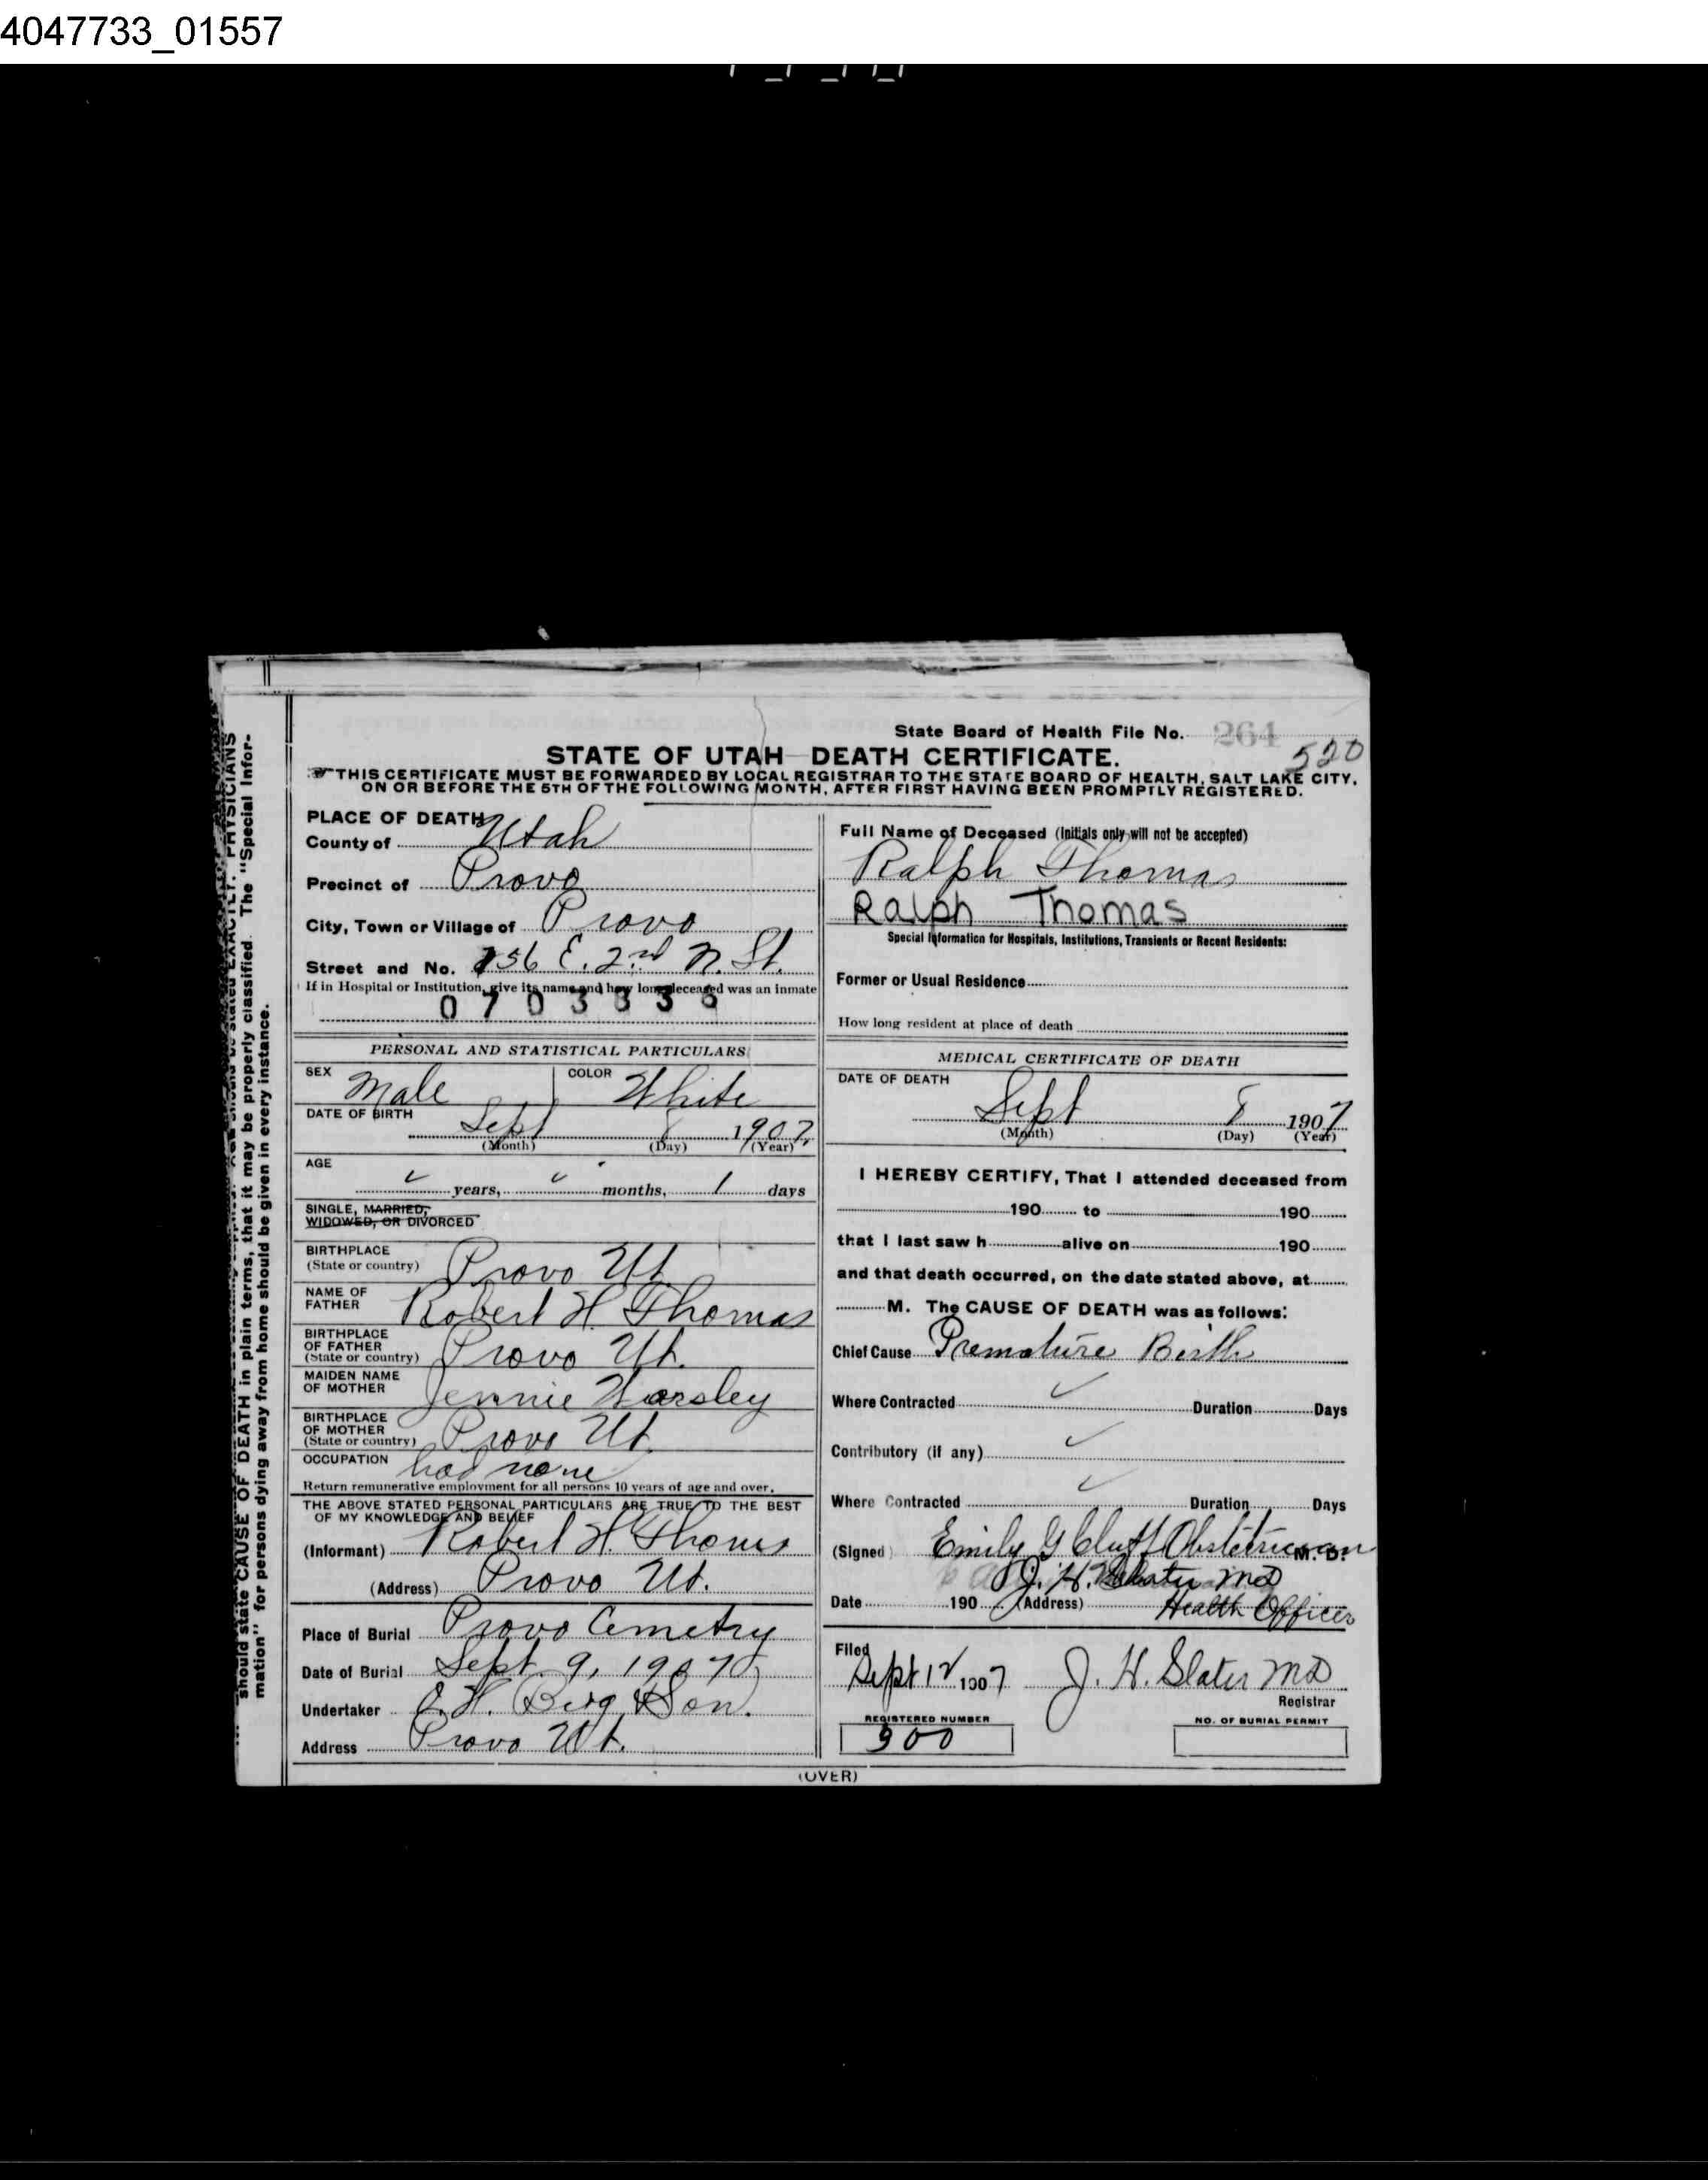 4047733_01557
State Board of Health File No. 264
520
STATE OF UTAH—DEATH CERTIFICATE.
THIS CERTIFICATE MUST BE FORWARDED BY LOCAL REGISTRAR TO THE STATE BOARD OF HEALTH, SALT LAKE CITY,
ON OR BEFORE THE 5TH OF THE FOLLOWING MONTH, AFTER FIRST HAVING BEEN PROMPTLY REGISTERED.
PLACE OF DEATH
County of Utah
Precinct of Provo
City, Town or Village of Provo
Street and No. 756 E. 2nd N. St.
If in Hospital or Institution, give its name and how long deceased was an inmate
PERSONAL AND STATISTICAL PARTICULARS
SEX Male COLOR White
DATE OF BIRTH Sept 8 1907
(Month) (Day) (Year)
AGE
years, months, 1 days
SINGLE, MARRIED,
WIDOWED, OR DIVORCED
BIRTHPLACE
(State or country) Provo Ut.
NAME OF
FATHER Robert H. Thomas
BIRTHPLACE
OF FATHER
(State or country) Provo Ut.
MAIDEN NAME
OF MOTHER Jennie Worsley
BIRTHPLACE
OF MOTHER
(State or country) Provo Ut.
OCCUPATION had none
Return remunerative employment for all persons 10 years of age and over.
THE ABOVE STATED PERSONAL PARTICULARS ARE TRUE TO THE BEST
OF MY KNOWLEDGE AND BELIEF
(Informant) Robert H. Thomas
(Address) Provo Ut.
Place of Burial Provo Cemetry
Date of Burial Sept. 9, 1907
Undertaker O. H. Berg & Son.
Address Provo Ut.
Full Name of Deceased (Initials only will not be accepted)
Ralph Thomas
Ralph Thomas
Special Information for Hospitals, Institutions, Transients or Recent Residents:
Former or Usual Residence
How long resident at place of death
MEDICAL CERTIFICATE OF DEATH
DATE OF DEATH
Sept 8 1907
(Month) (Day) (Year)
I HEREBY CERTIFY, That I attended deceased from
190 to 190
that I last saw h alive on 190
and that death occurred, on the date stated above, at
M. The CAUSE OF DEATH was as follows:
Chief Cause Premature Birth
Where Contracted Duration Days
Contributory (if any)
Where Contracted Duration Days
(Signed) Emily G Cluff Obstetrician M. D.
J. H. Slater MD
Date 190 (Address) Health Officer
Filed
Sept 12 1907 J. H. Slater MD
Registrar
REGISTERED NUMBER NO. OF BURIAL PERMIT
300
(OVER)
should state CAUSE OF DEATH in plain terms, that it may be properly classified. The "Special Infor-
mation" for persons dying away from home should be given in every instance.